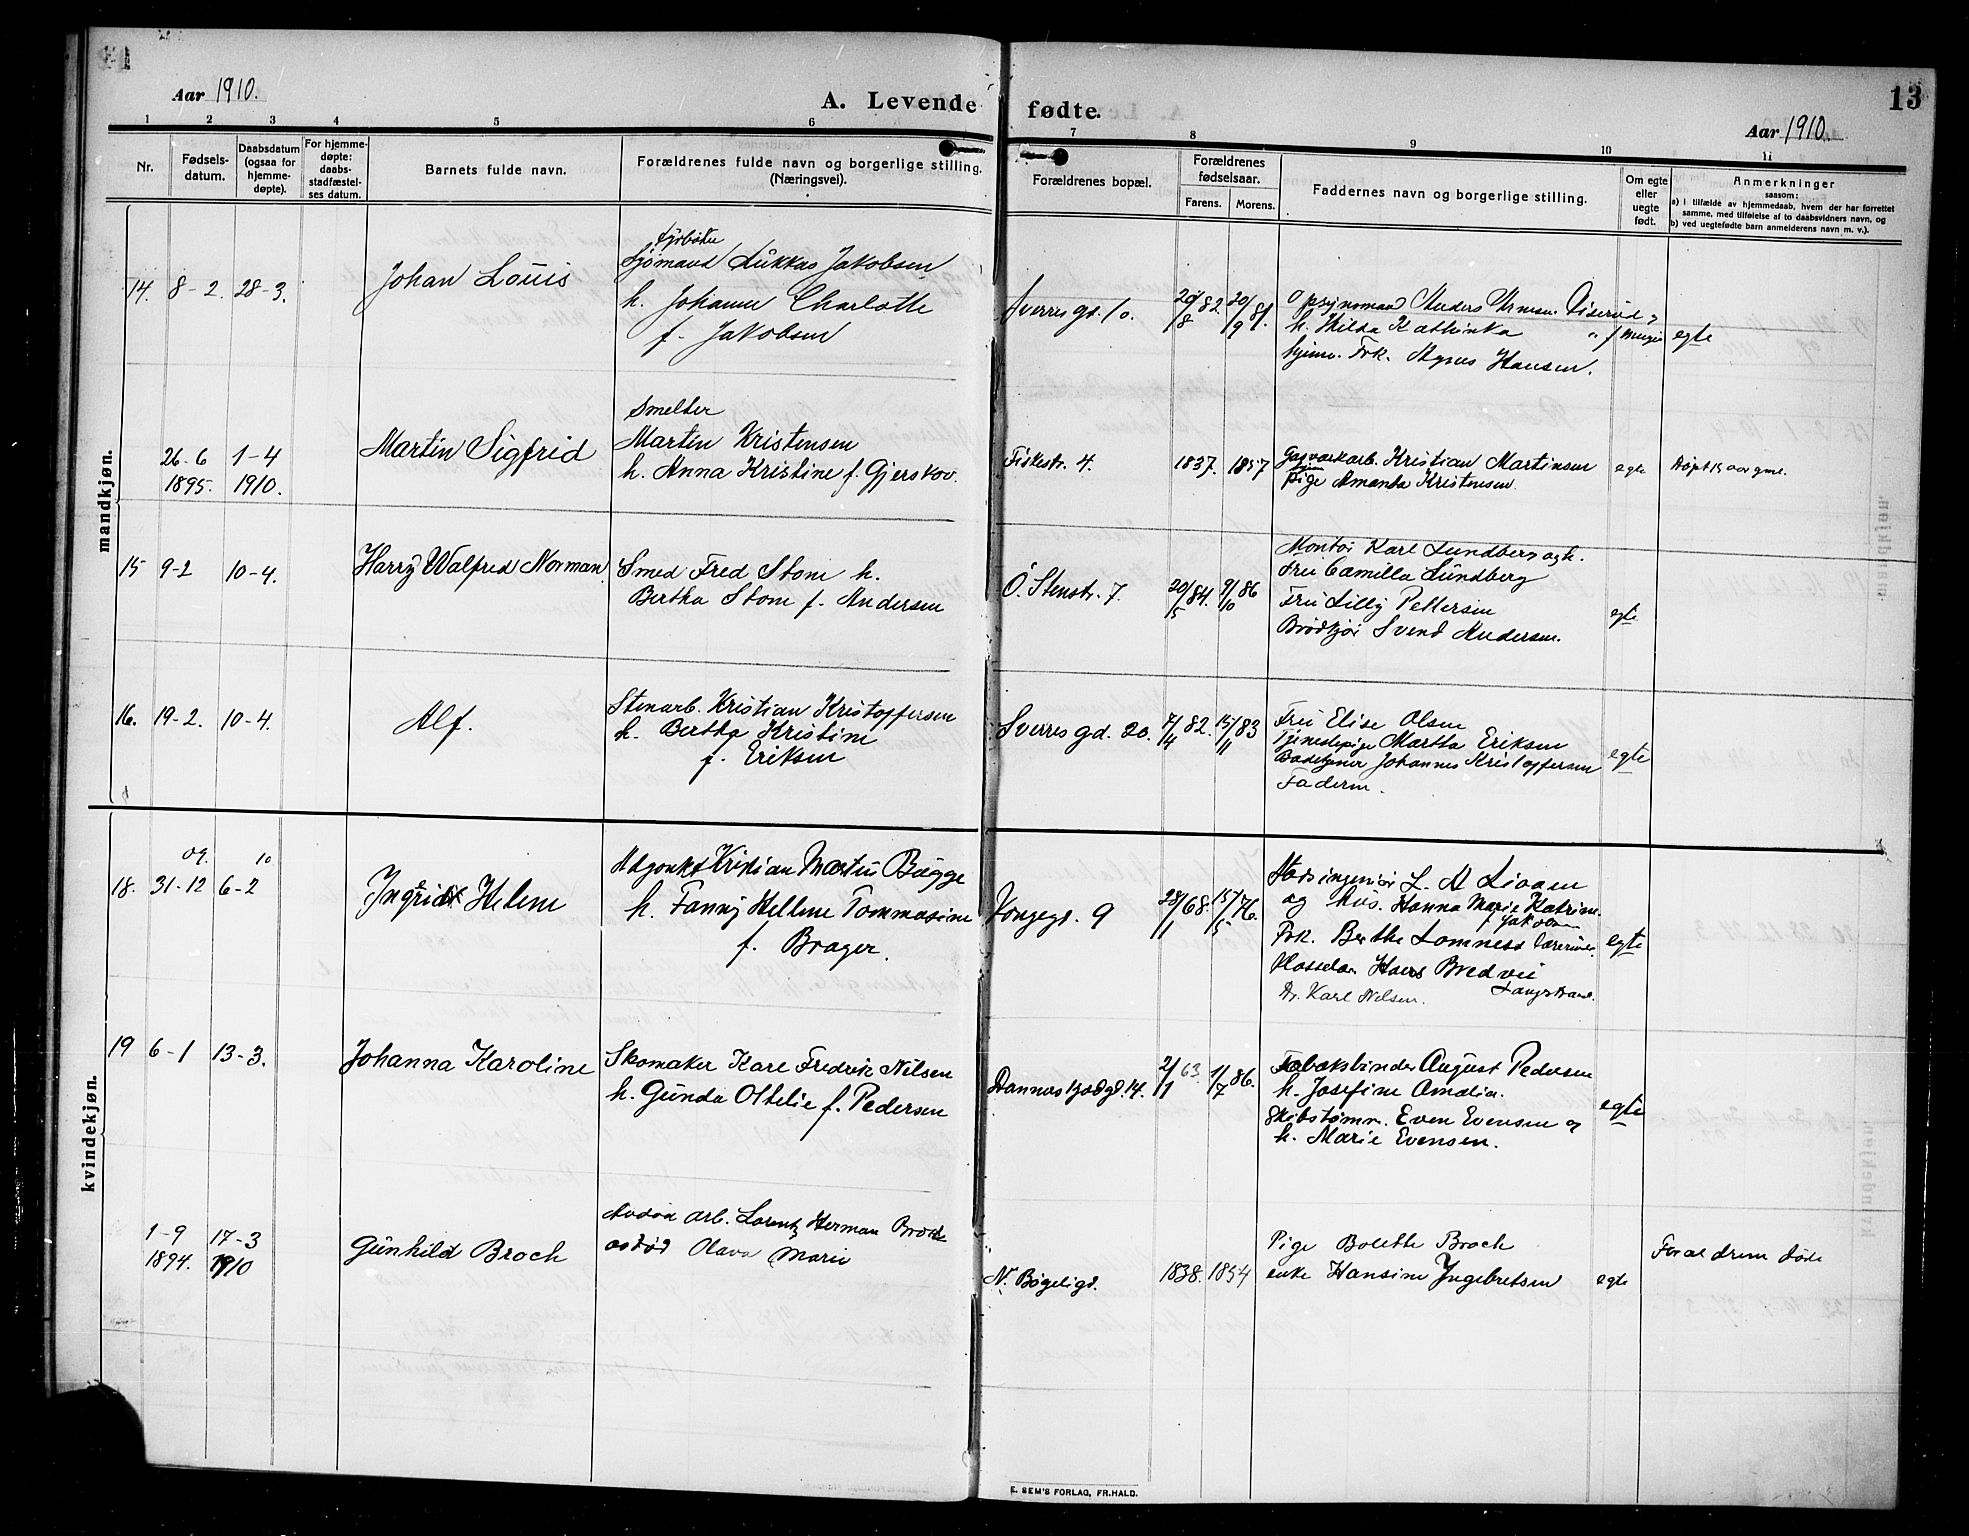 Aar 1910.
A. Levende fødte.
13
Aar 1910.
1 2 3 4 5 6 7 8 9 10 11
Nr.
Fødsels-
datum.
Daabsdatum
(ogsaa for
hjemme-
døpte).
For hjemme-
døpte:
daabs-
stadfæstel-
ses datum.
Barnets fulde navn.
Forældrenes fulde navn og borgerlige stilling.
(Næringsvei).
Forældrenes bopæl.
Forældrenes
fødselsaar.
Farens. Morens.
Faddernes navn og borgerlige stilling.
Om egte
eller
uegte
født.
Anmerkninger
saasom:
a) i tilfælde av hjemmedaab, hvem der har forrettet
samme, med tilføielse av to daabsvidners navn, og
b) ved uegtefødte barn anmelderens navn m. v.).
mandkjøn.
14. 8-2. 28-3.
Johan Louis
Fyrbøter
Sjømand Lukkas Jakobsen
h. Johanne Charlotte
f. Jakobsen
Sverresgd. 10.
20/8 82. 20/9 81.
Opsynsmand Anders
h. Hilda Kathinka
Frk. Agnes Hansen.
egte
26-6 1-4
1895. 1910.
Martin Sigfrid
Smelter
Martin Kristensen
h. Anna Kristine f. Gjerskov.
Fiskestr. 4.
1837. 1857
Gasværkarb. Kristian Martinsen
Pige Amanda Kristensen.
egte
Døpt 15 aar gml.
15 9-2 10-4.
Harry Walfred Norman
Smed Fred Stom h.
Bertha Stom f. Andersen
Ö. Stenstr. 7.
20/5 84. 9/10 86
Montør Karl Lundberg og h.
Fru Camilla Lundberg
Fru Lilly Pettersen
Brødkjør Svend Andersen.
egte
16. 19-2. 10-4.
Alf.
Stenarb. Kristian Kristoffersen
h. Bertha Kristine
f. Eriksen
Sverresgd. 20.
7/4 82. 15/11 83
Fru Elise Olsen
Tjenestepige Martha Eriksen
Badetjener Johannes Kristoffersen
Faderen.
egte
kvindekjøn.
09. 10
18. 31-12 6-2
Ingrid Helene
Kristian Martin Bugge
h. Fanny Hellene Tommasine
f. Brager.
Kongegd. 9
28/1 68. 15/5 76.
Stadsingeniør L. A Lioaen
og hus. Hanna Marie Katrine
f. Jakobsen
Frk. Berthe Lomness lærerinde.
Hans Bredvei
Langstrand.
Dr. Karl Nilsen.
egte
19 6-1 13-3.
Johanna Karoline
Skomaker Karl Fredrik Nilsen
h. Gunda Othelie f. Pedersen
Dannaskjoldgd. 14.
2/1 63. 1/7 86.
Tobaksbinder August Pedersen
h. Josefine Amalia.
Skibstømm. Even Evensen og
h. Marie Evensen.
egte
1-9 17-3
1894. 1910
Gunhild Broch
Avdød arb. Lorentz Herman Broch
avdød Olava Marie
N. Bøgeligd.
1838. 1854
Pige Bolette Broch
enke Hansine Ingebretsen
egte
Forældrene døde
E. SEM'S FORLAG, FR.HALD.